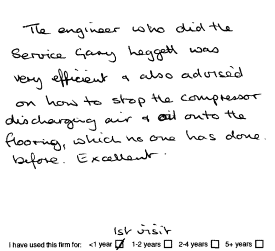 The engineer who did the
Service Gary Leggett was
very efficient & also advised
on how to stop the compressor
discharging air & oil onto the
flooring, which no one has done
before. Excellent.
1st visit
I have used this firm for: <1 year 1-2 years 2-4 years 5+ years